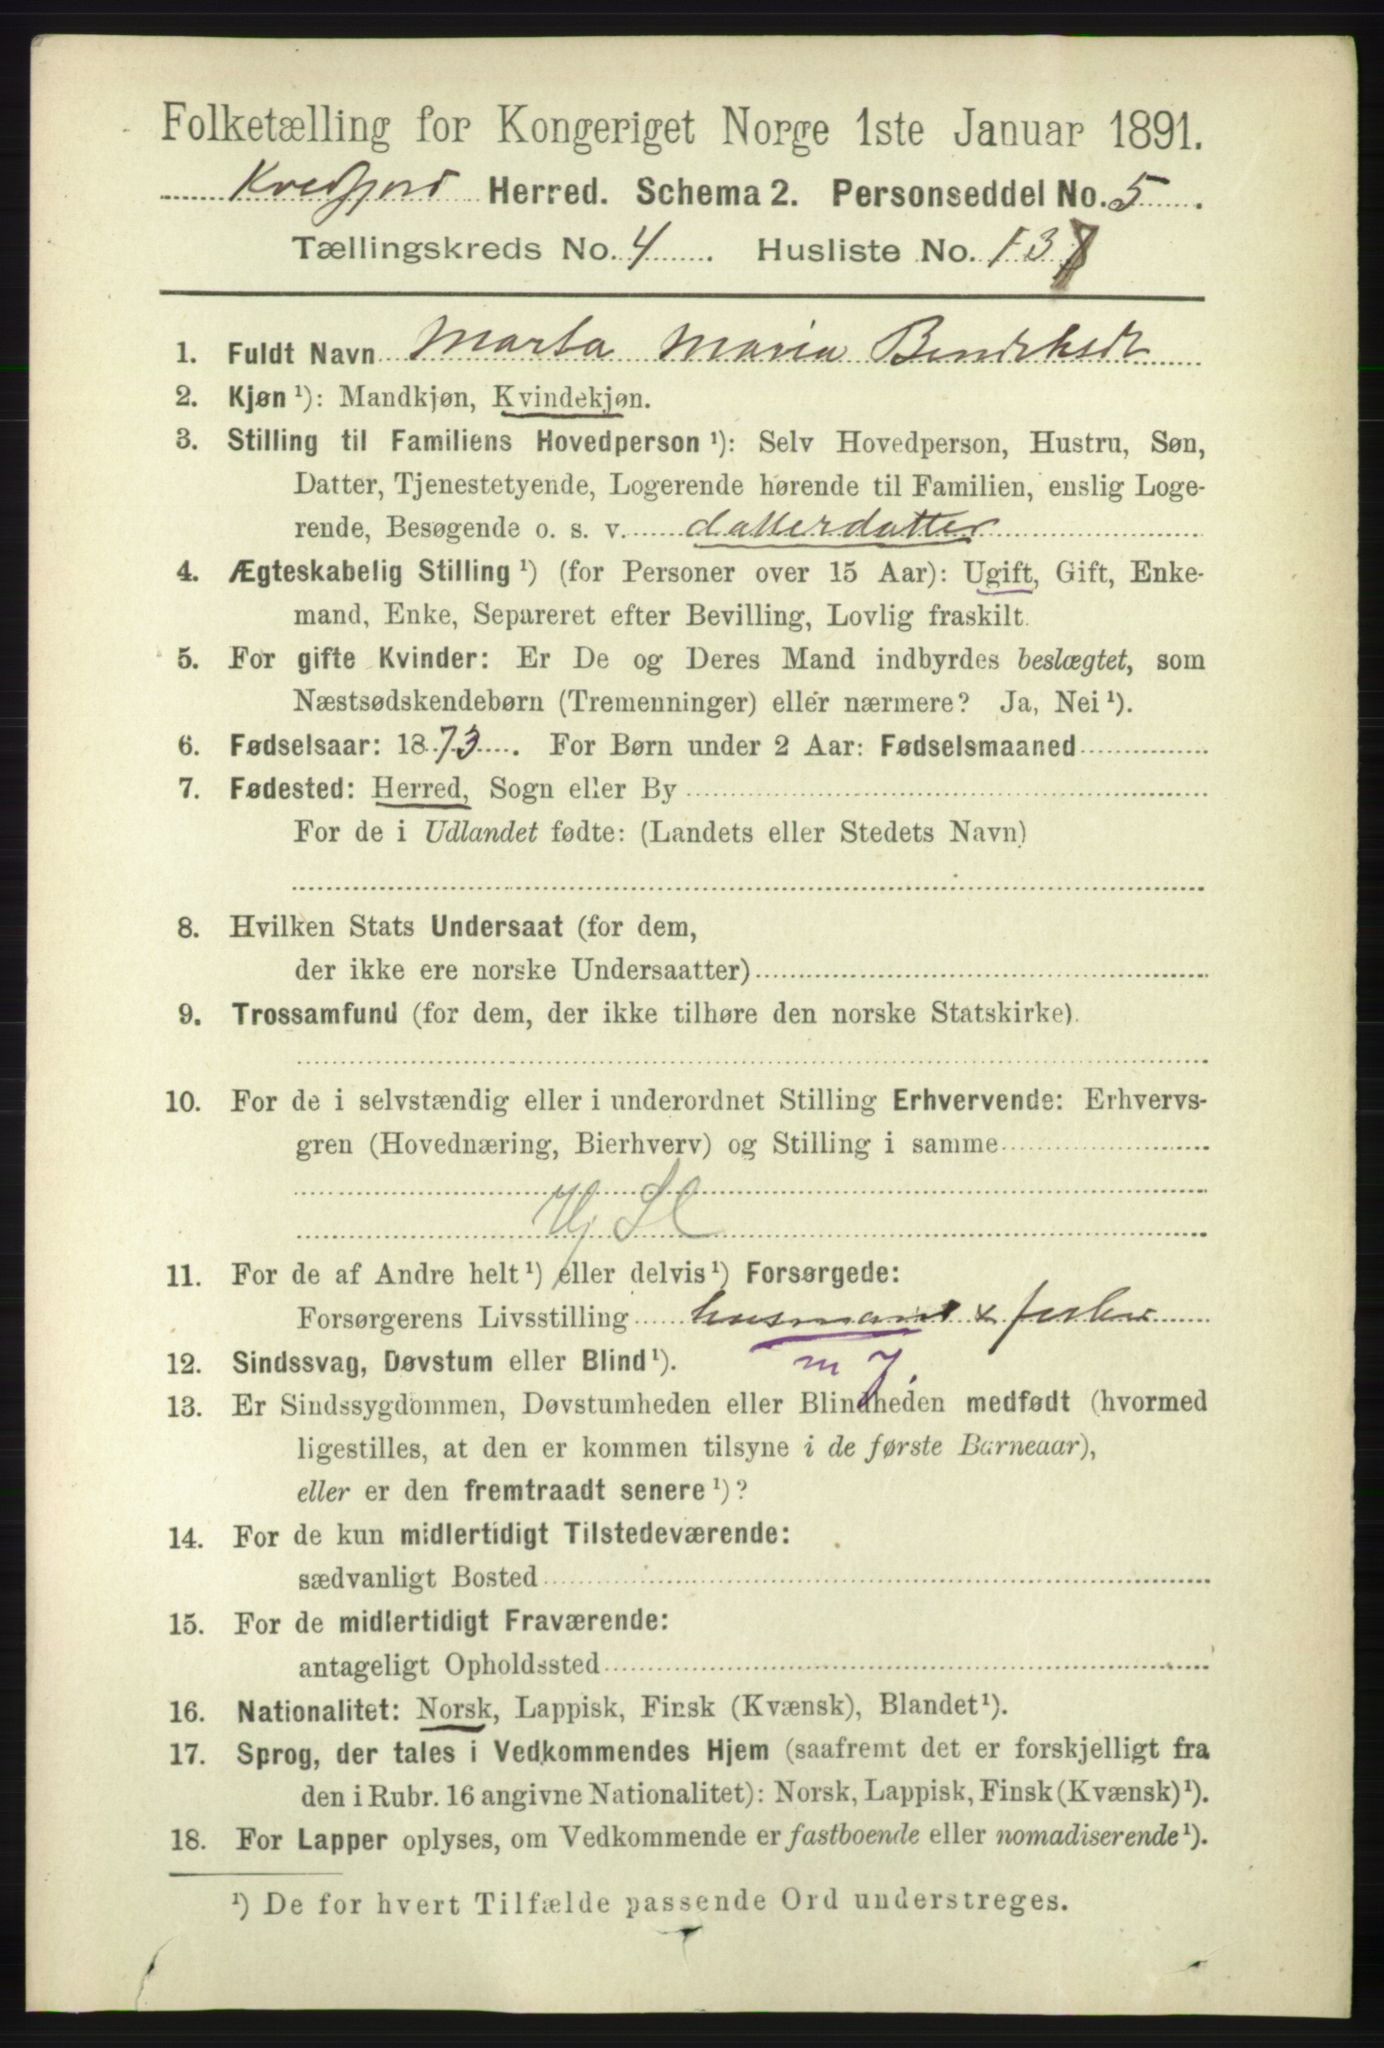 Folketælling for Kongeriget Norge 1ste Januar 1891.
Kvedfjord Herred. Schema 2. Personseddel No. 5
Tællingskreds No. 4 Husliste No. 137
1. Fuldt Navn Marta Maria
2. Kjøn ¹): Mandkjøn, Kvindekjøn.
3. Stilling til Familiens Hovedperson ¹): Selv Hovedperson, Hustru, Søn,
Datter, Tjenestetyende, Logerende hørende til Familien, enslig Loge-
rende, Besøgende o. s. v. datterdatter
4. Ægteskabelig Stilling ¹) (for Personer over 15 Aar): Ugift, Gift, Enke-
mand, Enke, Separeret efter Bevilling, Lovlig fraskilt.
5. For gifte Kvinder: Er De og Deres Mand indbyrdes beslægtet, som
Næstsødskendebørn (Tremenninger) eller nærmere? Ja, Nei ¹).
6. Fødselsaar: 1873. For Børn under 2 Aar: Fødselsmaaned
7. Fødested: Herred, Sogn eller By
For de i Udlandet fødte: (Landets eller Stedets Navn)
8. Hvilken Stats Undersaat (for dem,
der ikke ere norske Undersaatter)
9. Trossamfund (for dem, der ikke tilhøre den norske Statskirke).
10. For de i selvstændig eller i underordnet Stilling Erhvervende: Erhvervs-
gren (Hovednæring, Bierhverv) og Stilling i samme
11. For de af Andre helt ¹) eller delvis ¹) Forsørgede:
Forsørgerens Livsstilling husmand & fisker
12. Sindssvag, Døvstum eller Blind ¹). m J.
13. Er Sindssygdommen, Døvstumheden eller Blindheden medfødt (hvormed
ligestilles, at den er kommen tilsyne i de første Barneaar),
eller er den fremtraadt senere ¹)?
14. For de kun midlertidigt Tilstedeværende:
sædvanligt Bosted
15. For de midlertidigt Fraværende:
antageligt Opholdssted
16. Nationalitet: Norsk, Lappisk, Finsk (Kvænsk), Blandet ¹).
17. Sprog, der tales i Vedkommendes Hjem (saafremt det er forskjelligt fra
den i Rubr. 16 angivne Nationalitet): Norsk, Lappisk, Finsk (Kvænsk) ¹).
18. For Lapper oplyses, om Vedkommende er fastboende eller nomadiserende ¹).
¹) De for hvert Tilfælde passende Ord understreges.